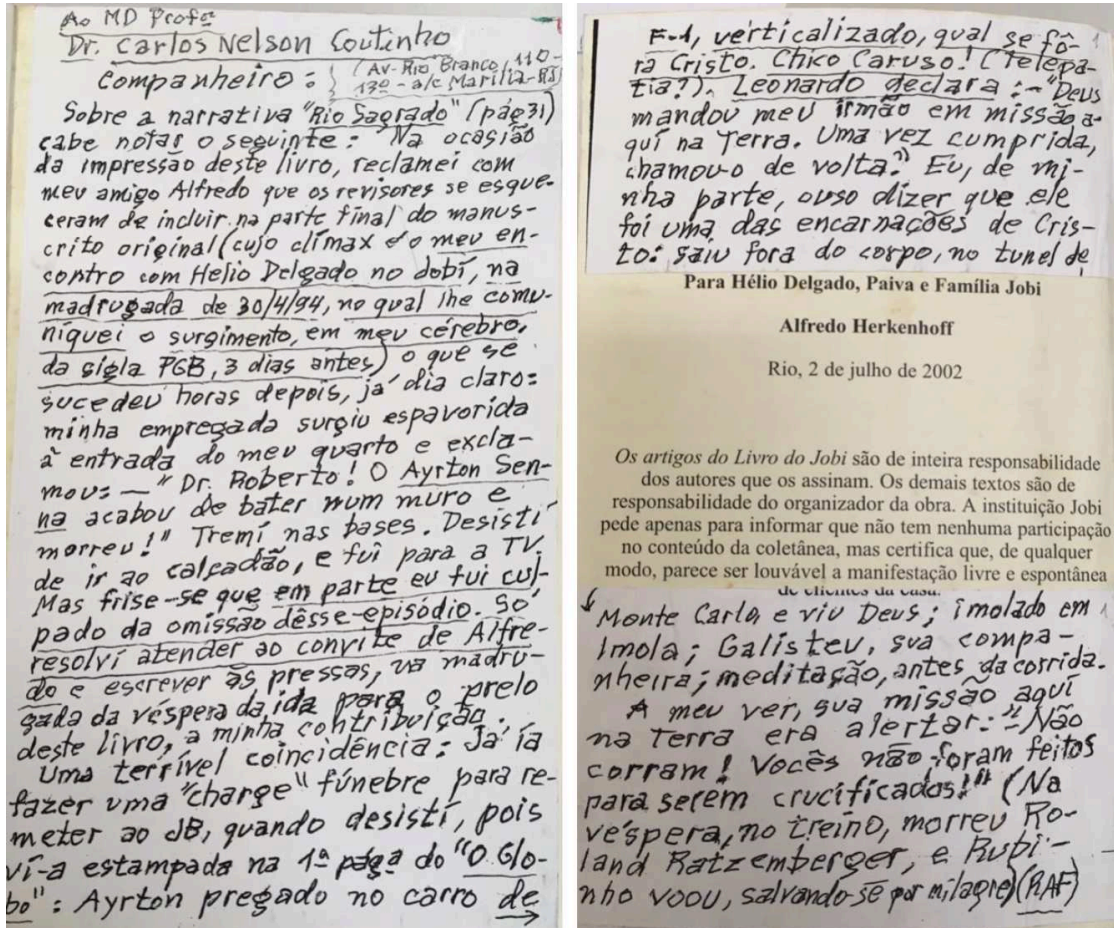 Ao MD Profº
Dr. Carlos Nelson Coutinho
(Av. Rio Branco, 110-
Companheiro: 13º - a/c Marília-RJ)
Sobre a narrativa "Rio Sagrado" (pág 31)
cabe notar o seguinte: Na ocasião
da impressão deste livro, reclamei com
meu amigo Alfredo que os revisores se esque-
ceram de incluir na parte final do manus-
crito original (cujo clímax é o meu en-
contro com Helio Delgado no Jobí, na
madrugada de 30/4/94, no qual lhe comu-
niquei o surgimento, em meu cérebro,
da sigla PGB, 3 dias antes) o que se
sucedeu horas depois, já dia claro:
minha empregada surgiu espavorida
à entrada do meu quarto e excla-
mou: — "Dr. Roberto! O Ayrton Sen-
na acabou de bater num muro e
morreu!" Tremí nas bases. Desistí
de ir ao calçadão, e fui para a TV.
Mas frise-se que em parte eu fui cul-
pado da omissão dêsse episódio. Só
resolví atender ao convite de Alfre-
do e escrever às pressas, na madru-
gada da véspera da ida para o prelo
deste livro, a minha contribuição.
Uma terrível coincidência: Já ía
fazer uma "charge" fúnebre para re-
meter ao JB, quando desistí, pois
ví-a estampada na 1ª pág<u>a</u> do "O Glo-
bo": Ayrton pregado no carro de →
F-1, verticalizado, qual se fô-
ra Cristo. Chico Caruso! (Telepa-
tia?). Leonardo declara: - "Deus
mandou meu irmão em missão a-
quí na Terra. Uma vez cumprida,
chamou-o de volta." Eu, de mi-
nha parte, ouso dizer que ele
foi uma das encarnações de Cris-
to: saiu fora do corpo, no tunel de
Para Hélio Delgado, Paiva e Família Jobi
Alfredo Herkenhoff
Rio, 2 de julho de 2002
Os artigos do Livro do Jobi são de inteira responsabilidade
dos autores que os assinam. Os demais textos são de
responsabilidade do organizador da obra. A instituição Jobi
pede apenas para informar que não tem nenhuma participação
no conteúdo da coletânea, mas certifica que, de qualquer
modo, parece ser louvável a manifestação livre e espontânea
de clientes da casa.
Monte Carlo, e viu Deus; imolado em
Imola; Galisteu, sua compa-
nheira; meditação, antes da corrida.
A meu ver, sua missão aquí
na Terra era alertar: - "Não
corram! Vocês não foram feitos
para serem crucificados!" (Na
véspera, no treino, morreu Ro-
land Ratzemberger, e Rubi-
nho voou, salvando-se por milagre) (RAF)